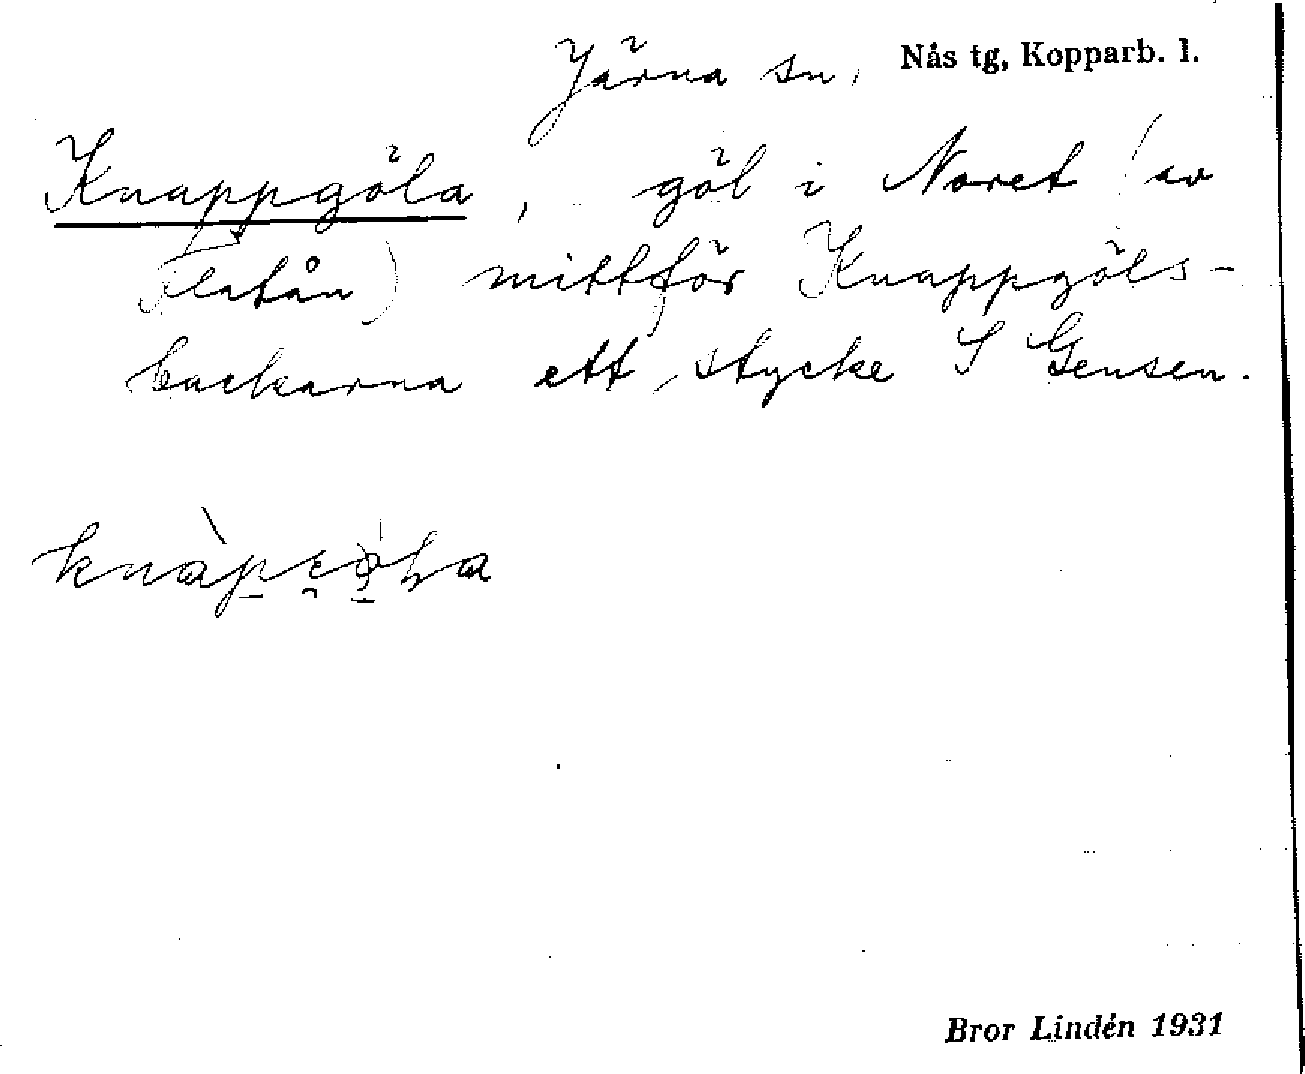 Järna sn, Nås tg, Kopparb. l.
Knappgöla, göl i Noret (av
Flatån) mittför Knappgöls-
backarna ett stycke S Gensen.
Bror Lindén 1931